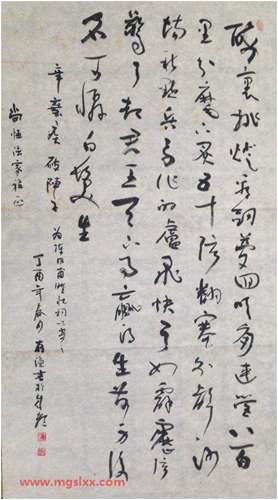 醉裏挑燈看劍夢回吹角連營八百
里分麾下炙五十弦翻塞外聲沙
場秋點兵馬作的盧飛快弓如霹靂弦
驚了却君王天下事贏得生前身後
名可憐白髮生
辛棄疾破陣子 為陳同甫賦壯詞以寄之
丁酉年春月 書於
法家 正
www.mgslxx.com